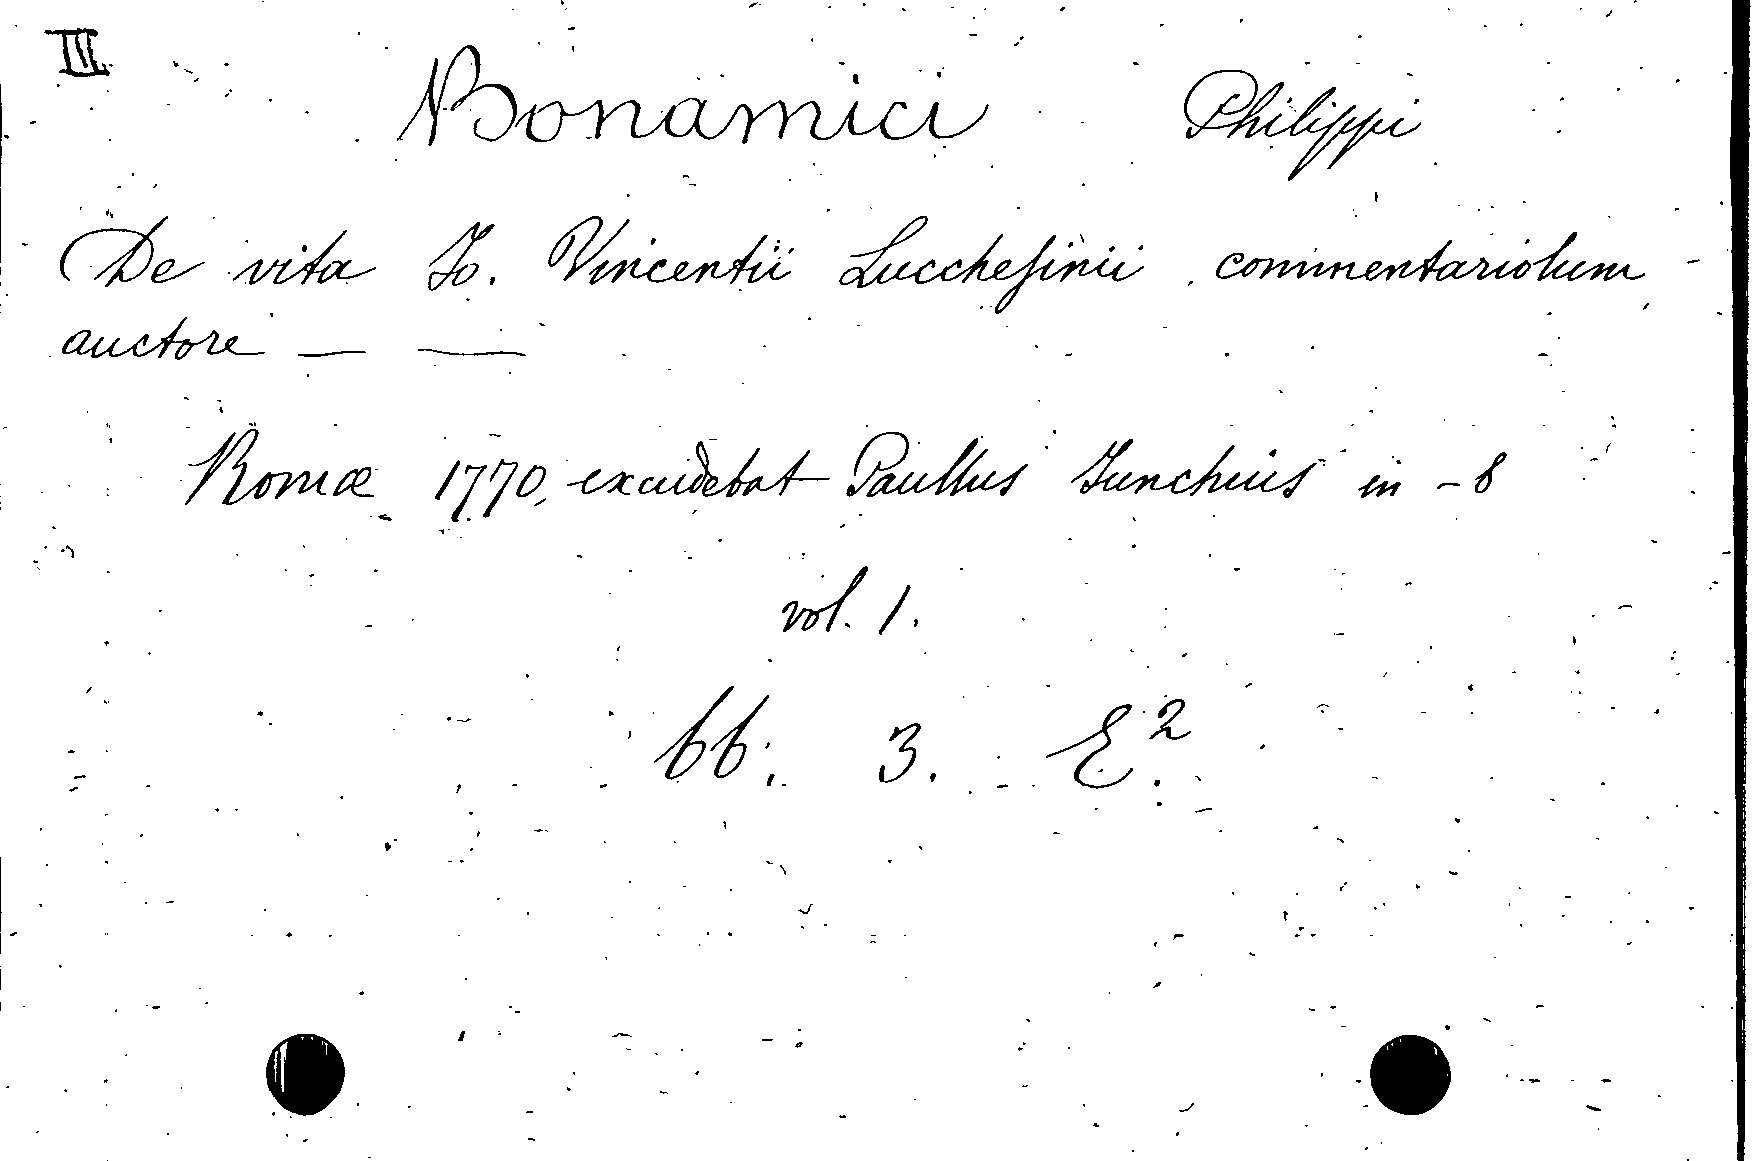 III.
Bonamici Philippi
De vita Jo. Vincentii Lucchesinii commentariolum
auctore — —
Romæ 1770, excudebat Paullus Junchius in -8
vol. 1.
bb. 3. E.²